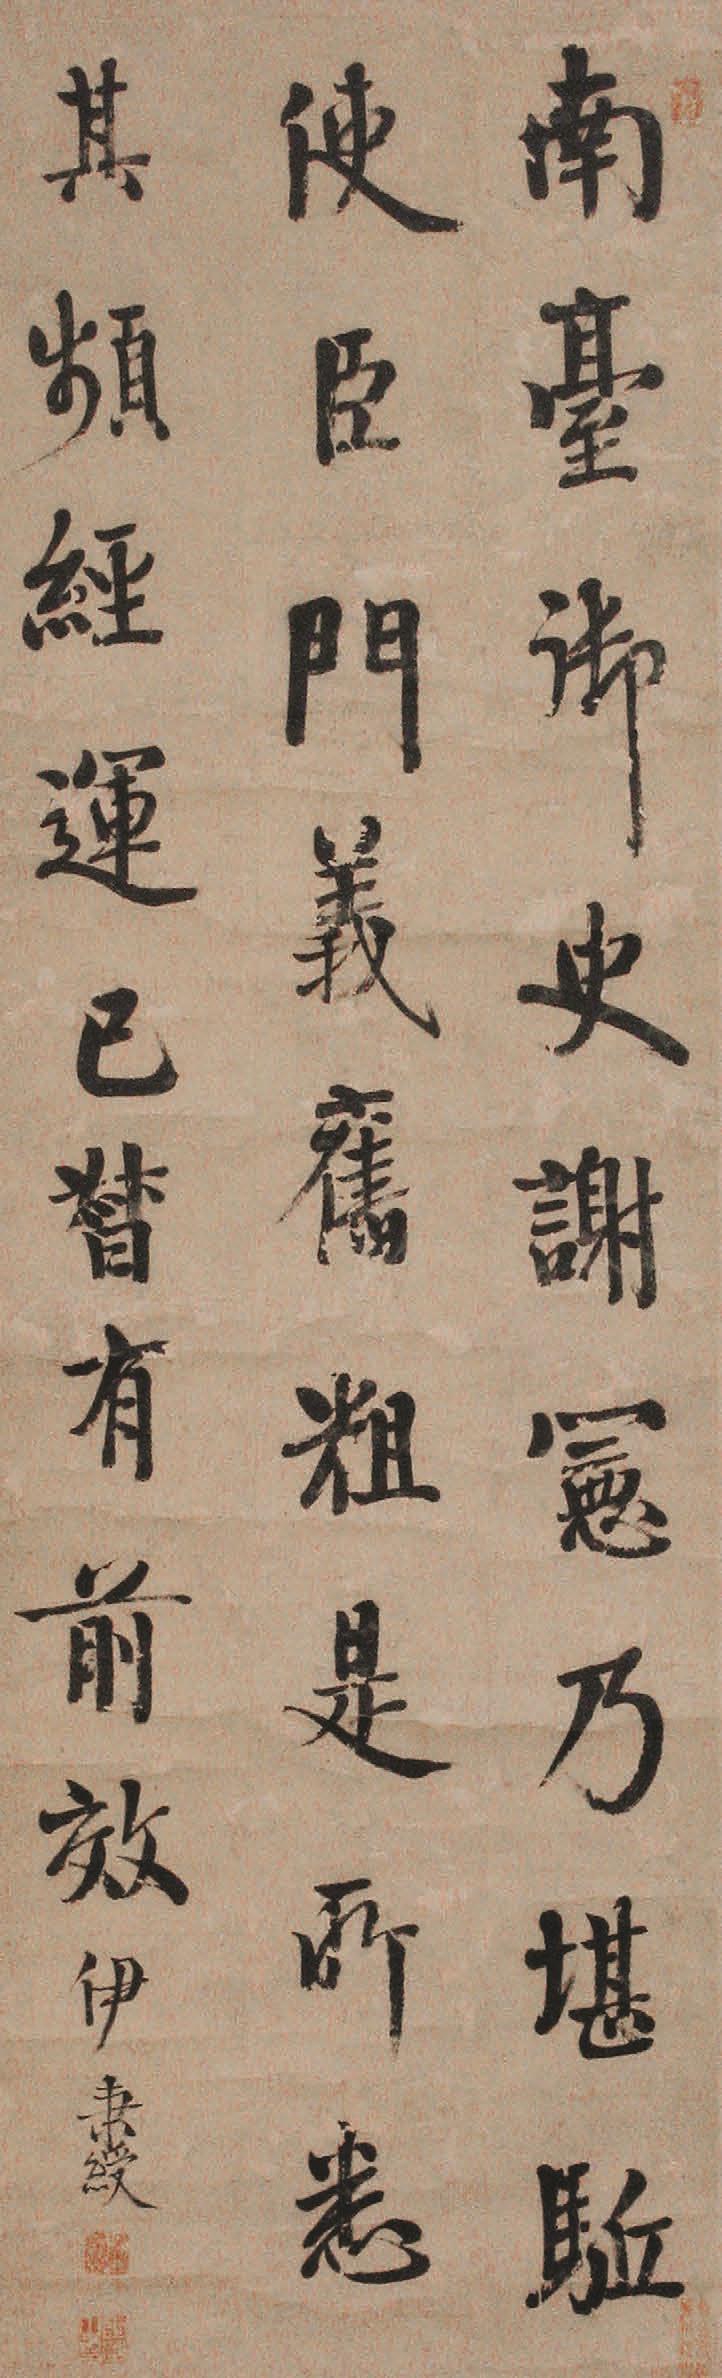 南臺御史謝憲乃堪驅
使臣門義舊粗是所悉
其頻經運已智有前效
伊秉綬